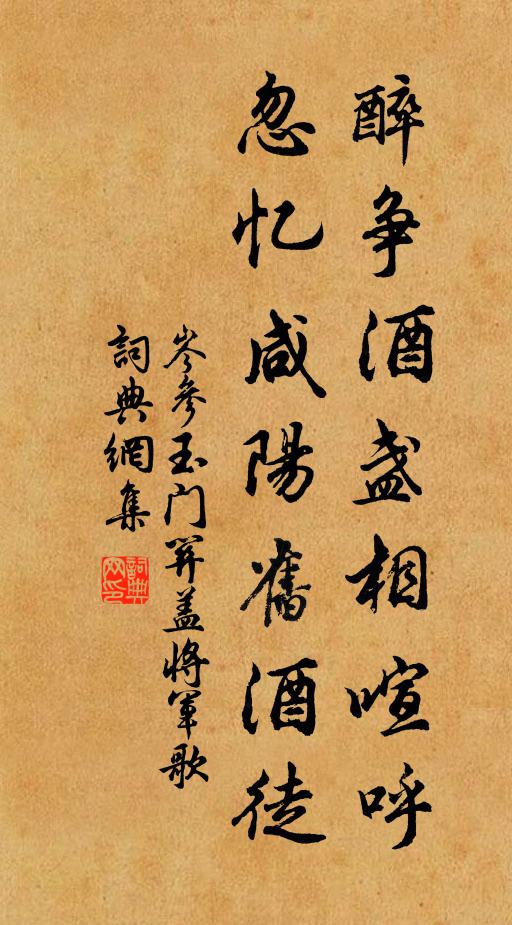 醉争酒盏相喧呼
忽忆咸陽舊酒徒
岑參玉门关盖將軍歌
詞典網集
詞典网印